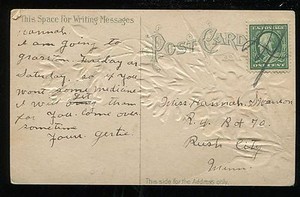 This Space for Writing Messages
POST CARD
Hannah
I am going to
Tuesday or
Saturday so if you
want some medicine
I will get them
for you. Come over
sometime
Yours Gertie
Miss Hannah
R. 4 B 70
Rush City
Minn
This side for the Address only
ONE CENT